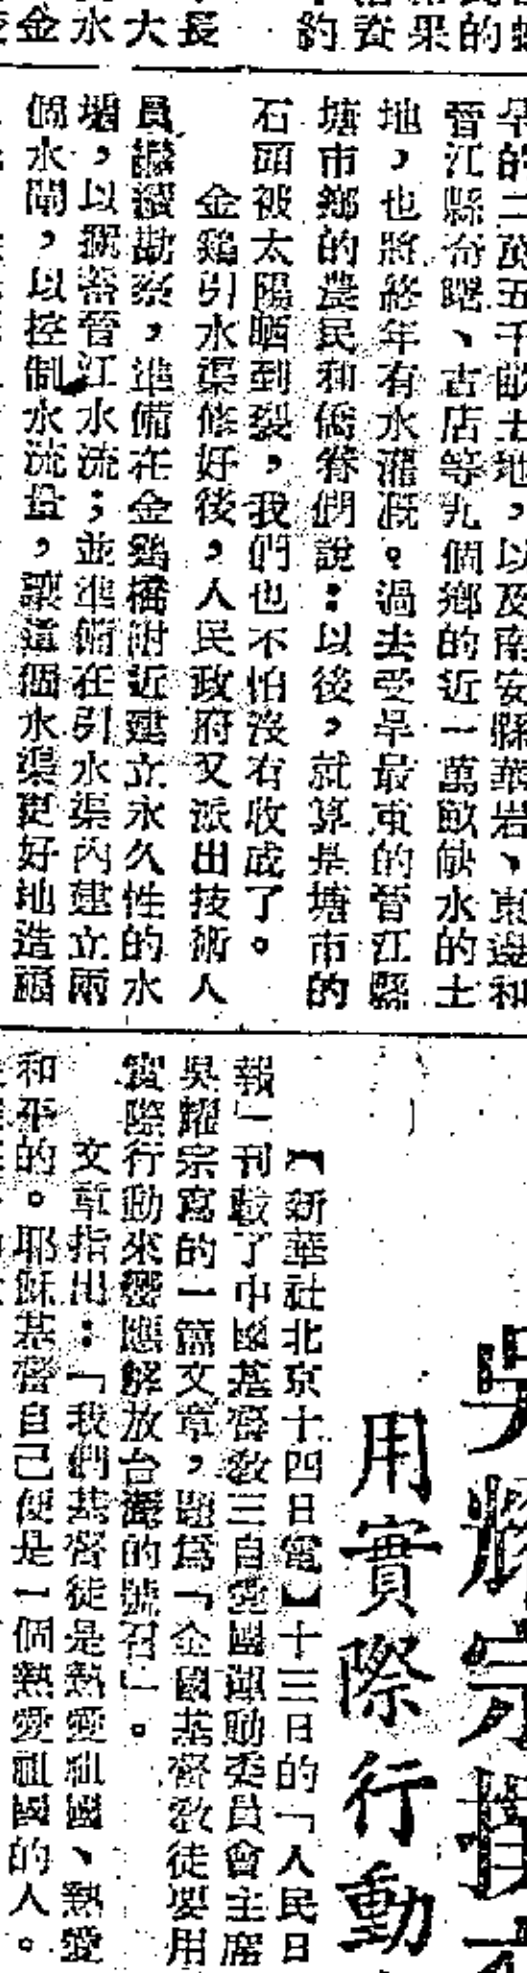 約
果的
長
大
水
金
旱的二萬五千畝土地，以及南安縣華岩、東邊和
晉江縣奇曙、古店等九個鄉的近一萬畝缺水的土
地，也將終年有水灌溉。過去受旱最重的晉江縣
塘市鄉的農民和僑眷們說：以後，就算是塘市的
石頭被太陽晒到裂，我們也不怕沒有收成了。
金鷄引水渠修好後，人民政府又派出技術人
員繼續勘察，準備在金鷄橋附近建立永久性的水
壩，以攔蓄晉江水流；並準備在引水渠內建立兩
個水閘，以控制水流量，讓這個水渠更好地造福
吳耀宗撰
用實際行動
【新華社北京十四日電】十三日的「人民日
報」刊載了中國基督敎三自愛國運動委員會主席
吳耀宗寫的一篇文章，題爲「全國基督敎徒要用
實際行動來響應解放台灣的號召」。
文章指出：「我們基督徒是熱愛祖國、熱愛
和平的。耶穌基督自己便是一個熱愛祖國的人。